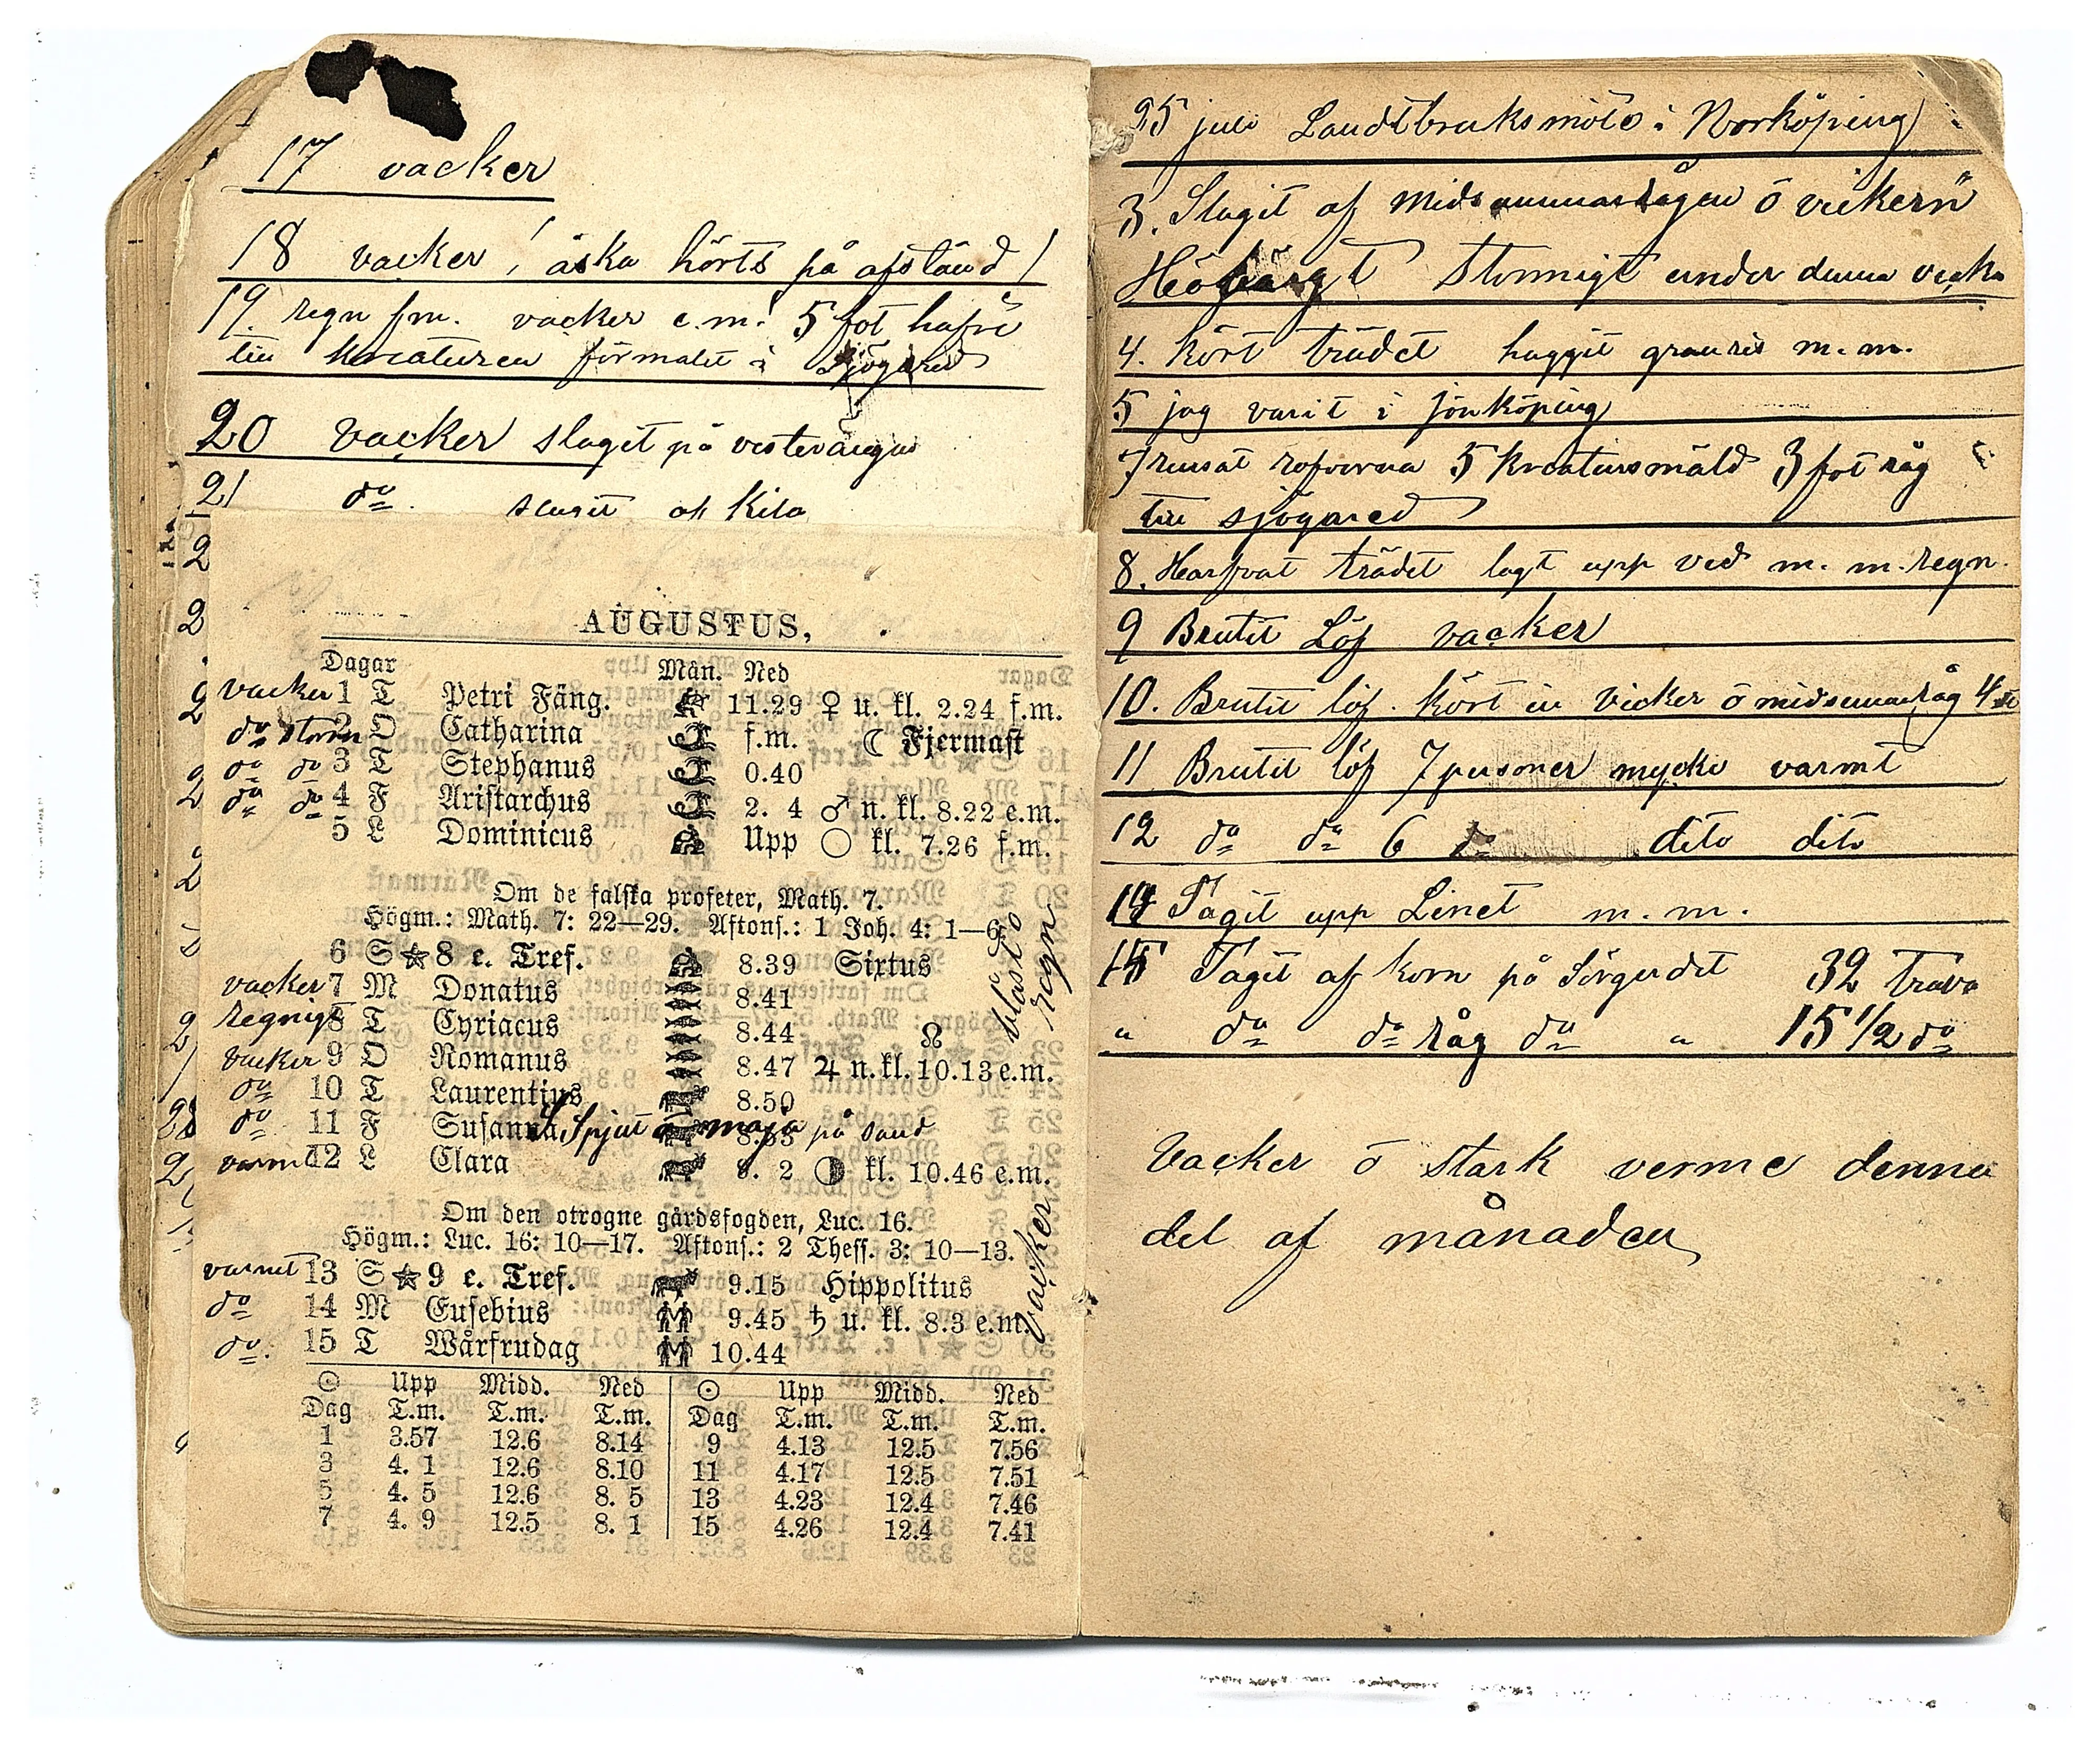 17 vacker
18 vacker / åska hörts på afstånd /
19. regn fm. vacker e.m. 5 fot hafre
till kreaturen förmalet i Sjögared
20 vacker slagit på vesterängen
21 do slagit af Kila
2
2
AUGUSTUS,
Dagar Mån. Ned
vacker 1 T Petri Fäng. 11.29 ♀ u. kl. 2.24 f.m.
do storm 2 O Catharina f.m. ☾ Fjermast
do do 3 T Stephanus 0.40
do do 4 F Aristarchus 2. 4 ♂ n. kl. 8.22 e.m.
5 L Dominicus Upp ○ kl. 7.26 f.m.
Om de falska profeter, Math. 7.
Högm.: Math. 7: 22—29. Aftons.: 1 Joh. 4: 1—6.
6 S ★ 8 e. Tref. 8.39 Sixtus
blåst o regn
vacker 7 M Donatus 8.41
regnigt 8 T Cyriacus 8.44 ☊
vacker 9 O Romanus 8.47 ♃ n. kl. 10.13 e.m.
do 10 T Laurentius 8.50
do 11 F Susanna 8.55 på sand
varmt 12 L Clara 9. 2 ◑ kl. 10.46 e.m.
Om den otrogne gårdsfogden, Luc. 16.
Högm.: Luc. 16: 10—17. Aftons.: 2 Thess. 3: 10—13.
varmt 13 S ★ 9 e. Tref. 9.15 Hippolitus
do 14 M Eusebius 9.45 ♄ u. kl. 8.3 e.m.
do. 15 T Wårfrudag 10.44
vacker
☉ Upp Midd. Ned ☉ Upp Midd. Ned
Dag T.m. T.m. T.m. Dag T.m. T.m. T.m.
1 3.57 12.6 8.14 9 4.13 12.5 7.56
3 4. 1 12.6 8.10 11 4.17 12.5 7.51
5 4. 5 12.6 8. 5 13 4.23 12.4 7.46
7 4. 9 12.5 8. 1 15 4.26 12.4 7.41
25 juli Landtbruksmöte i Norköping
3. Slagit af midsommarrågen o vickern
Höbärgt Stormigt under denna vecka
4. Kört trädet huggit granris m. m.
5 jag varit i Jönköping
7 rensat rofvorna 5 kreatursmäld 3 fot råg
till sjögared
8. Harfvat trädet lagt upp ved m. m. regn.
9 Brutit Löf vacker
10. Brutit löf. kört in vicker o midsommarråg 4
11 Brutit löf 7 personer mycke varmt
12 do do 6 do dito dito
14 Tagit upp Linet m. m.
15 Tagit af korn på Sörgerdet 32 trava
" do do råg do " 15 1/2 do
Vacker o stark verme denna
del af månaden